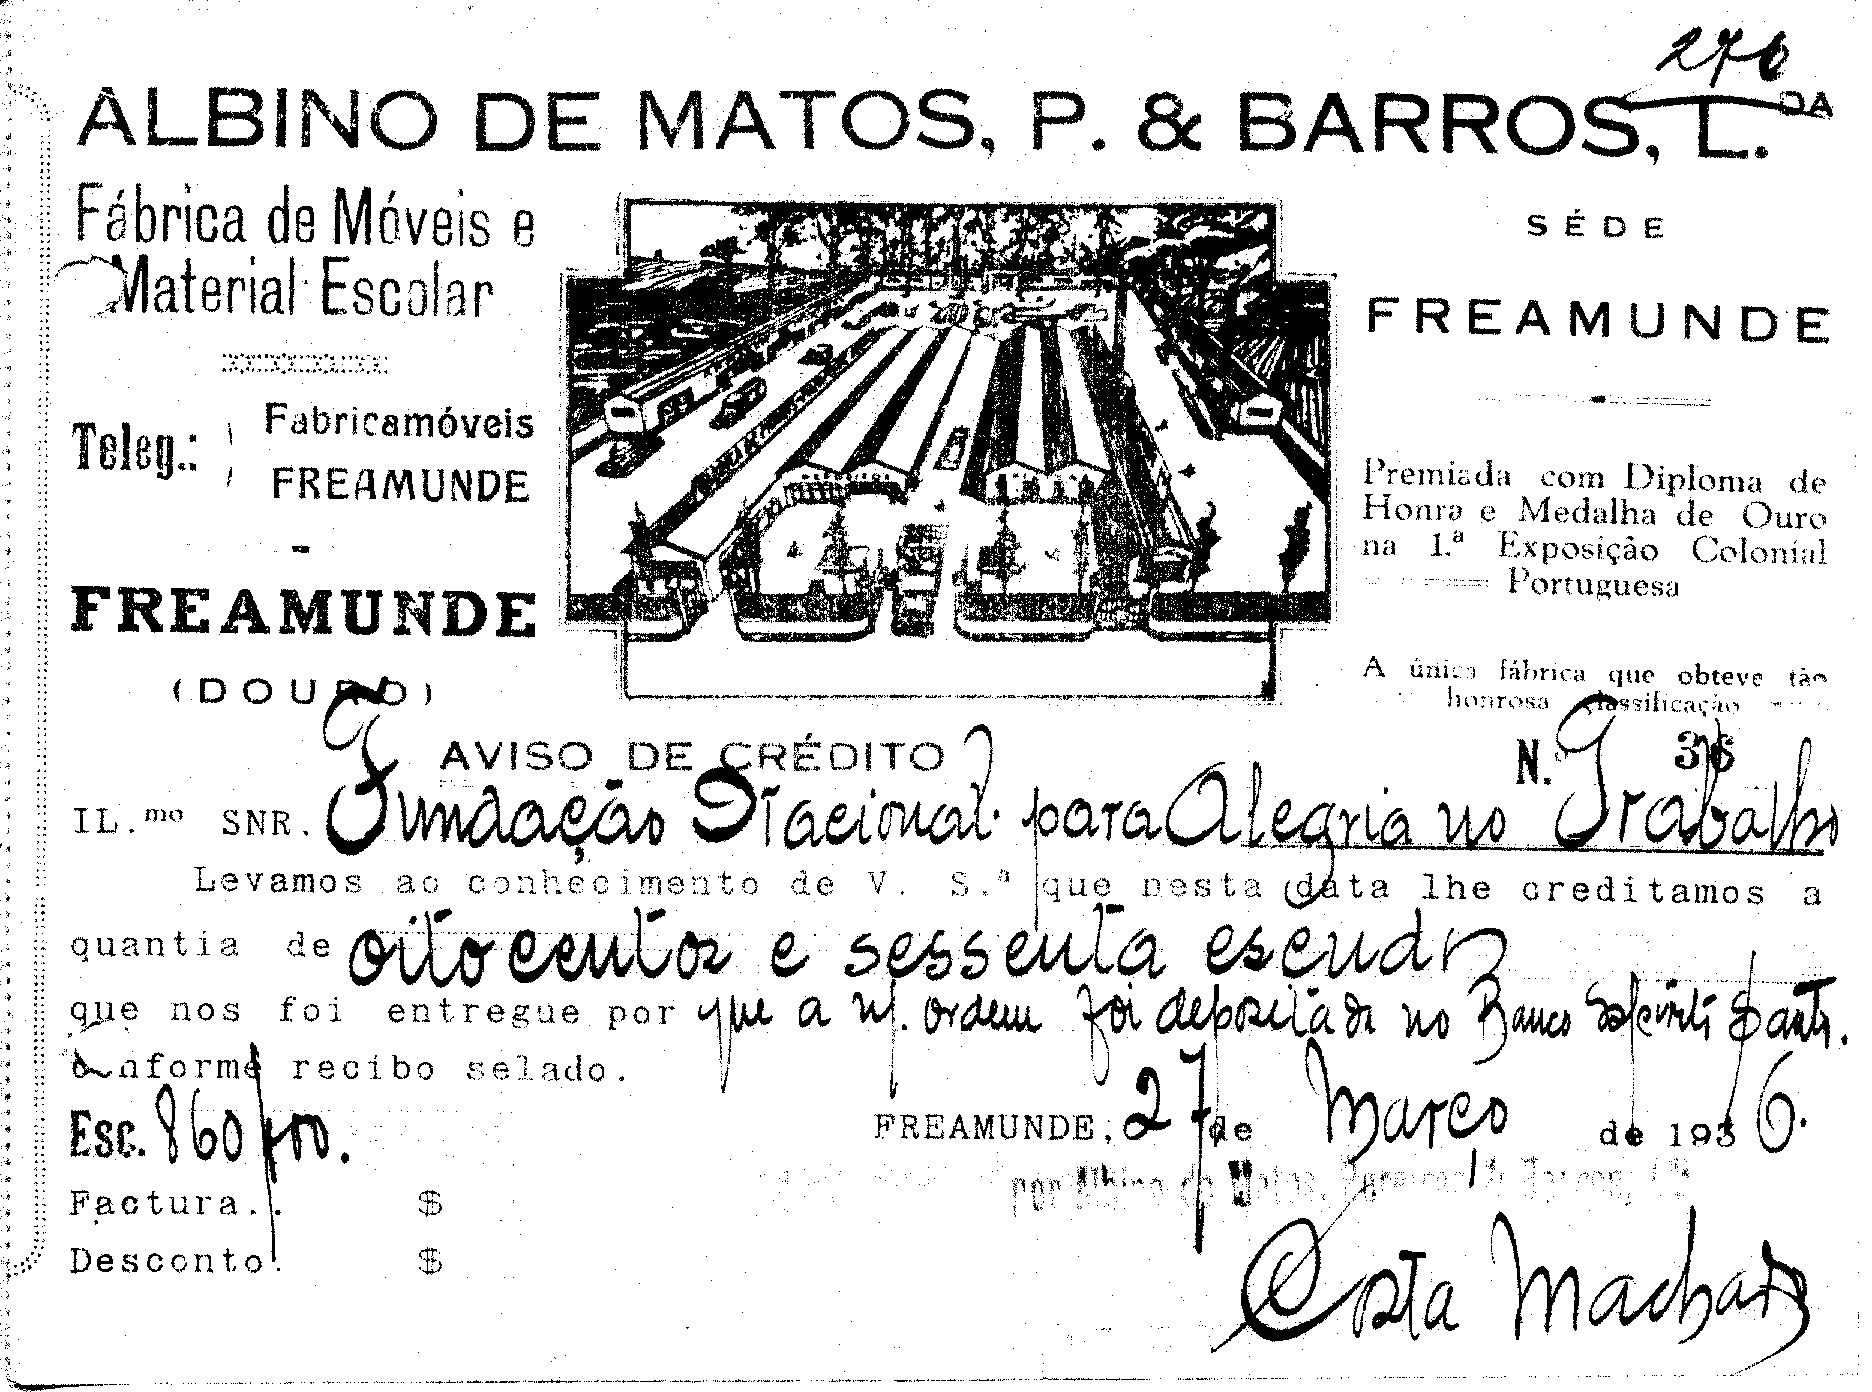 276
ALBINO DE MATOS, P. & BARROS, L.DA
Fábrica de Móveis e
Material Escolar
Teleg.: Fabricamóveis
FREAMUNDE
FREAMUNDE
(DOURO)
SÉDE
FREAMUNDE
Premiada com Diploma de
Honra e Medalha de Ouro
na 1.ª Exposição Colonial
Portuguesa
A única fábrica que obteve tão
honrosa classificação
AVISO DE CRÉDITO N.º 36
IL.mo SNR. Fundação Nacional para Alegria no Trabalho
Levamos ao conhecimento de V. S.ª que nesta data lhe creditamos a
quantia de oitocentos e sessenta escudos
que nos foi entregue por que a n/. ordem foi depositada no Banco Espirito Santo.
conforme recibo selado.
Esc. 860$00.
FREAMUNDE, 27 de Março de 1936.
Factura.. $
por Albino de Matos, Pereira & Barros, L.da
Desconto. $
Costa Machado